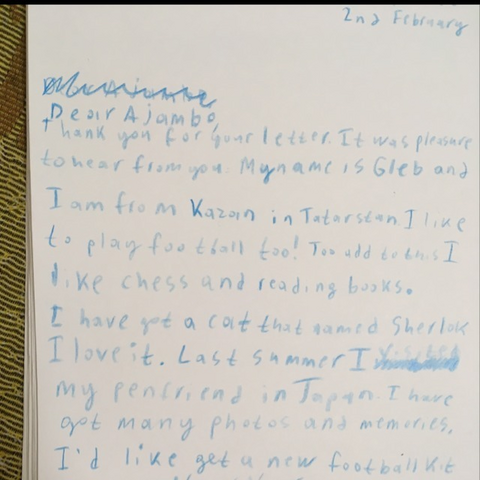 2nd February
Dear Ajambo,
Thank you for your letter. It was pleasure
to hear from you. My name is Gleb and
I am from Kazan in Tatarstan I like
to play football too! Too add to this I
like chess and reading books.
I have got a cat that named Sherlok
I love it. Last summer I visited
my penfriend in Japan. I have
got many photos and memories.
I'd like get a new football kit